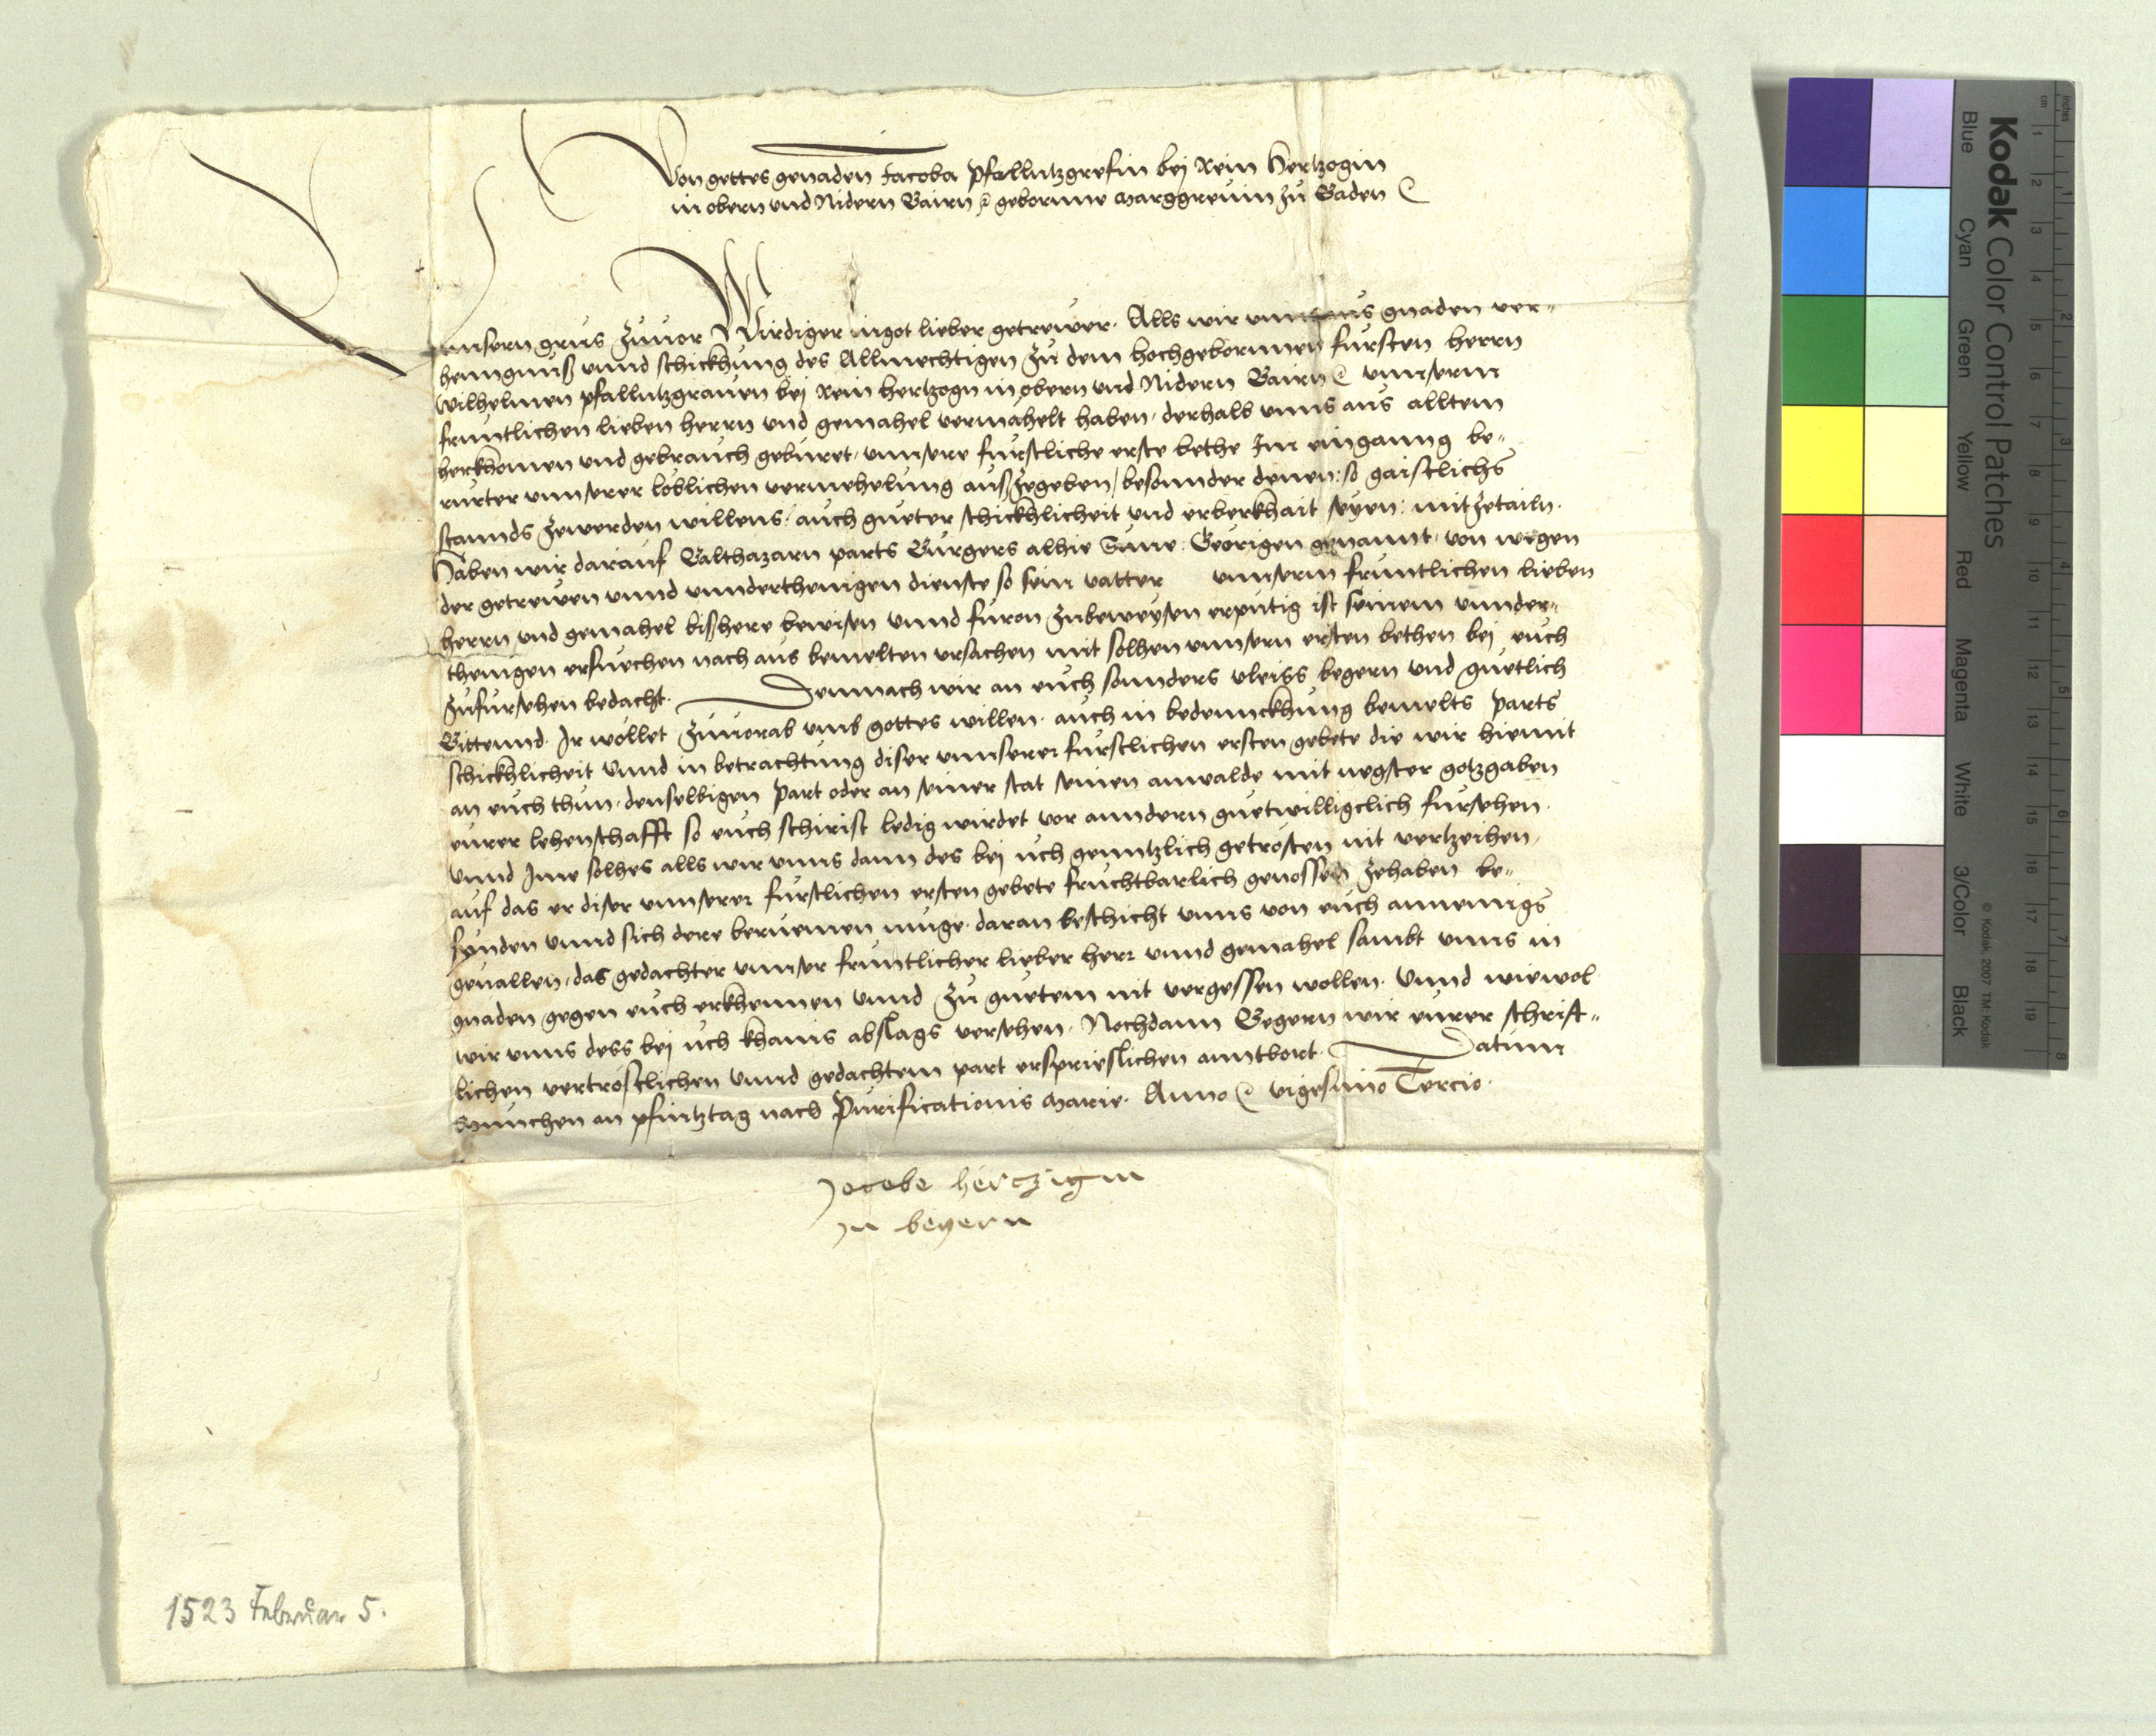 Von gottes genaden Jacoba Pfallntzgrefin bej Rein Hertzogin
in obern und Nidern Bairn etc gebornne Marggrevin zu Baden etc
Unnsern grus zuvor Wirdiger in got lieber getrewer. Alls wir unns aus gnaden ver-
henngnuß unnd schickhung des Allmechtigen zu dem hochgebornnen fursten herrn
Wilhelmen pfallntzgraven bej Rein hertzogn in obern und Nidern Bairn etc unnserm
fruntlichen lieben herrn und gemahel vermahelt haben, derhalb unns aus alltem
herkhomen und gebrauch geburet, unnsere furstliche erste bethe Im einganng be-
rurter unnserer loblichen vermehelung außzegeben, besonnder denen: so gaistlichs
stannds zewerden willens, auch gueter schickhlicheit und erberkhait seyen: mitzetailn.
Haben wir darauf Balthazarn parts Burgers alhie Sune. Georigen genannt, von wegen
der getrewen unnd unnderthenigen dienste so sein vatter unnserm fruntlichen lieben
herrn und gemahel bißhere bewisen unnd furon zubeweysen erputig ist seinem unnder-
thenigen ersuechen nach aus bemelten ursachen mit solhen unnsern ersten bethen bej euch
zufursehen bedacht. Demnach wir an euch sonnders vleiss begern und guetlich
Bittennd. Ir wollet zuvorab umb gottes willen. auch in bedennckhung bemelts parts
schickhlicheit unnd in betrachtung diser unnserer furstlichen ersten gebete die wir hiemit
an euch thun, denselbigen part oder an seiner stat seinen anwalde mit negster gotzgaben
eurer lehenschafft so euch schirist ledig wirdet vor anndern guetwilligclich fursehen.
unnd Ime solhes alls wir unns dann des bei uch genntzlich getrosten nit vertzeihen,
auf das er diser unnserer furstlichen ersten gebete fruchtbarlich genossen zehaben be-
fynden unnd sich dere beruemen muge. daran beschicht unns von euch annemigs
gevallen, das gedachter unnser fruntlicher lieber herr unnd gemahel sambt unns in
gnaden gegen euch erkhennen unnd zu guetem nit vergessen wollen. Unnd wiewol
wir unns dess bej uch khains abslags versehen. Nochdann Begern wir eurer schrift-
lichen vertrostlichen unnd gedachtem part ersprieslichen anntbort. Datum
Munchen an pfintztag nach Purificationis Marie. Anno etc vigesimo Tercio.
Jacobe herczigin
in beyern
1523 Februar 5.
Kodak Color Control Patches
Blue Cyan Green Yellow Red Magenta White 3/Color Black
© Kodak, 2007 TM: Kodak
inches 1 2 3 4 5 6 7 8
cm 1 2 3 4 5 6 7 8 9 10 11 12 13 14 15 16 17 18 19